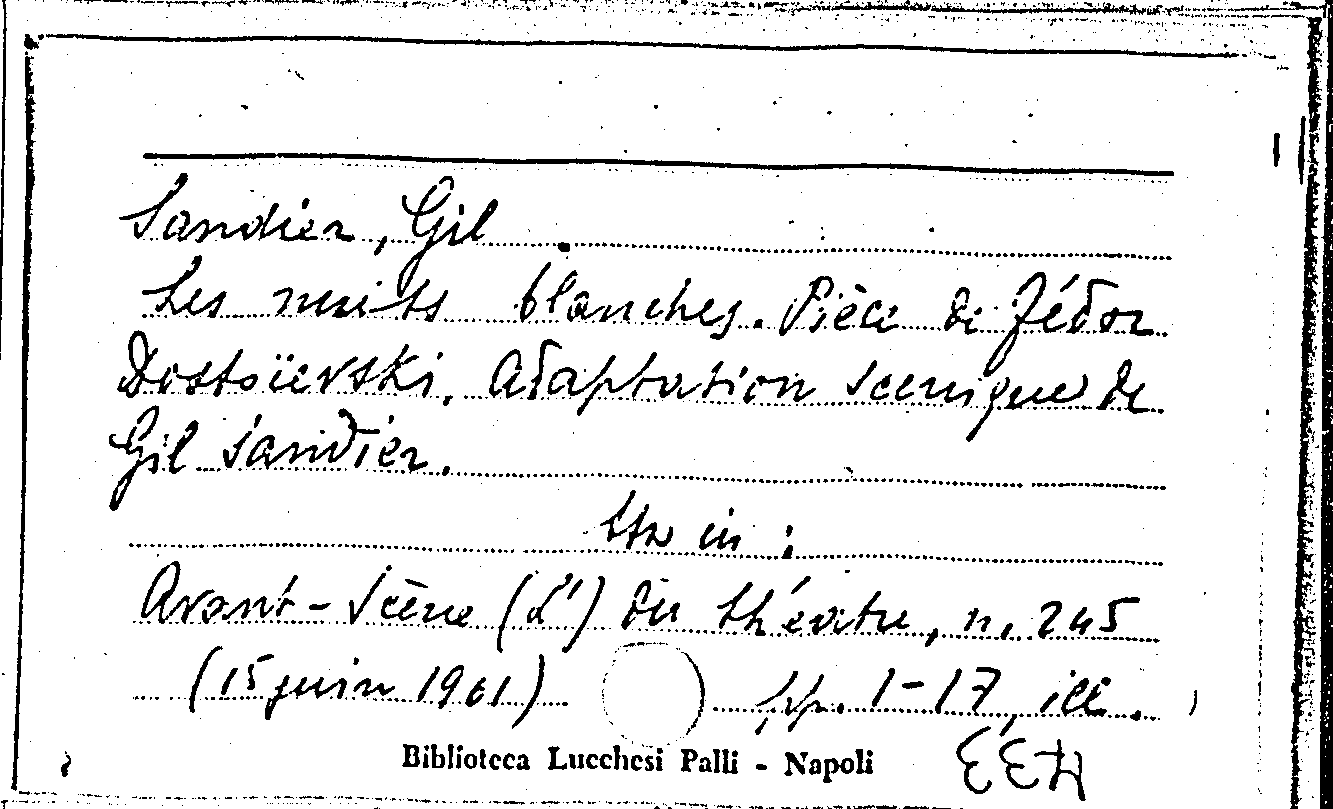 Sandier, Gil.
Les nuits blanches. Pièce de Fédor
Dostoïevski. Adaptation scenique de
Gil Sandier.
in :
Avant-Scène (L') du théatre, n. 245
(15 juin 1961) pp. 1-17, ill.
Biblioteca Lucchesi Palli - Napoli